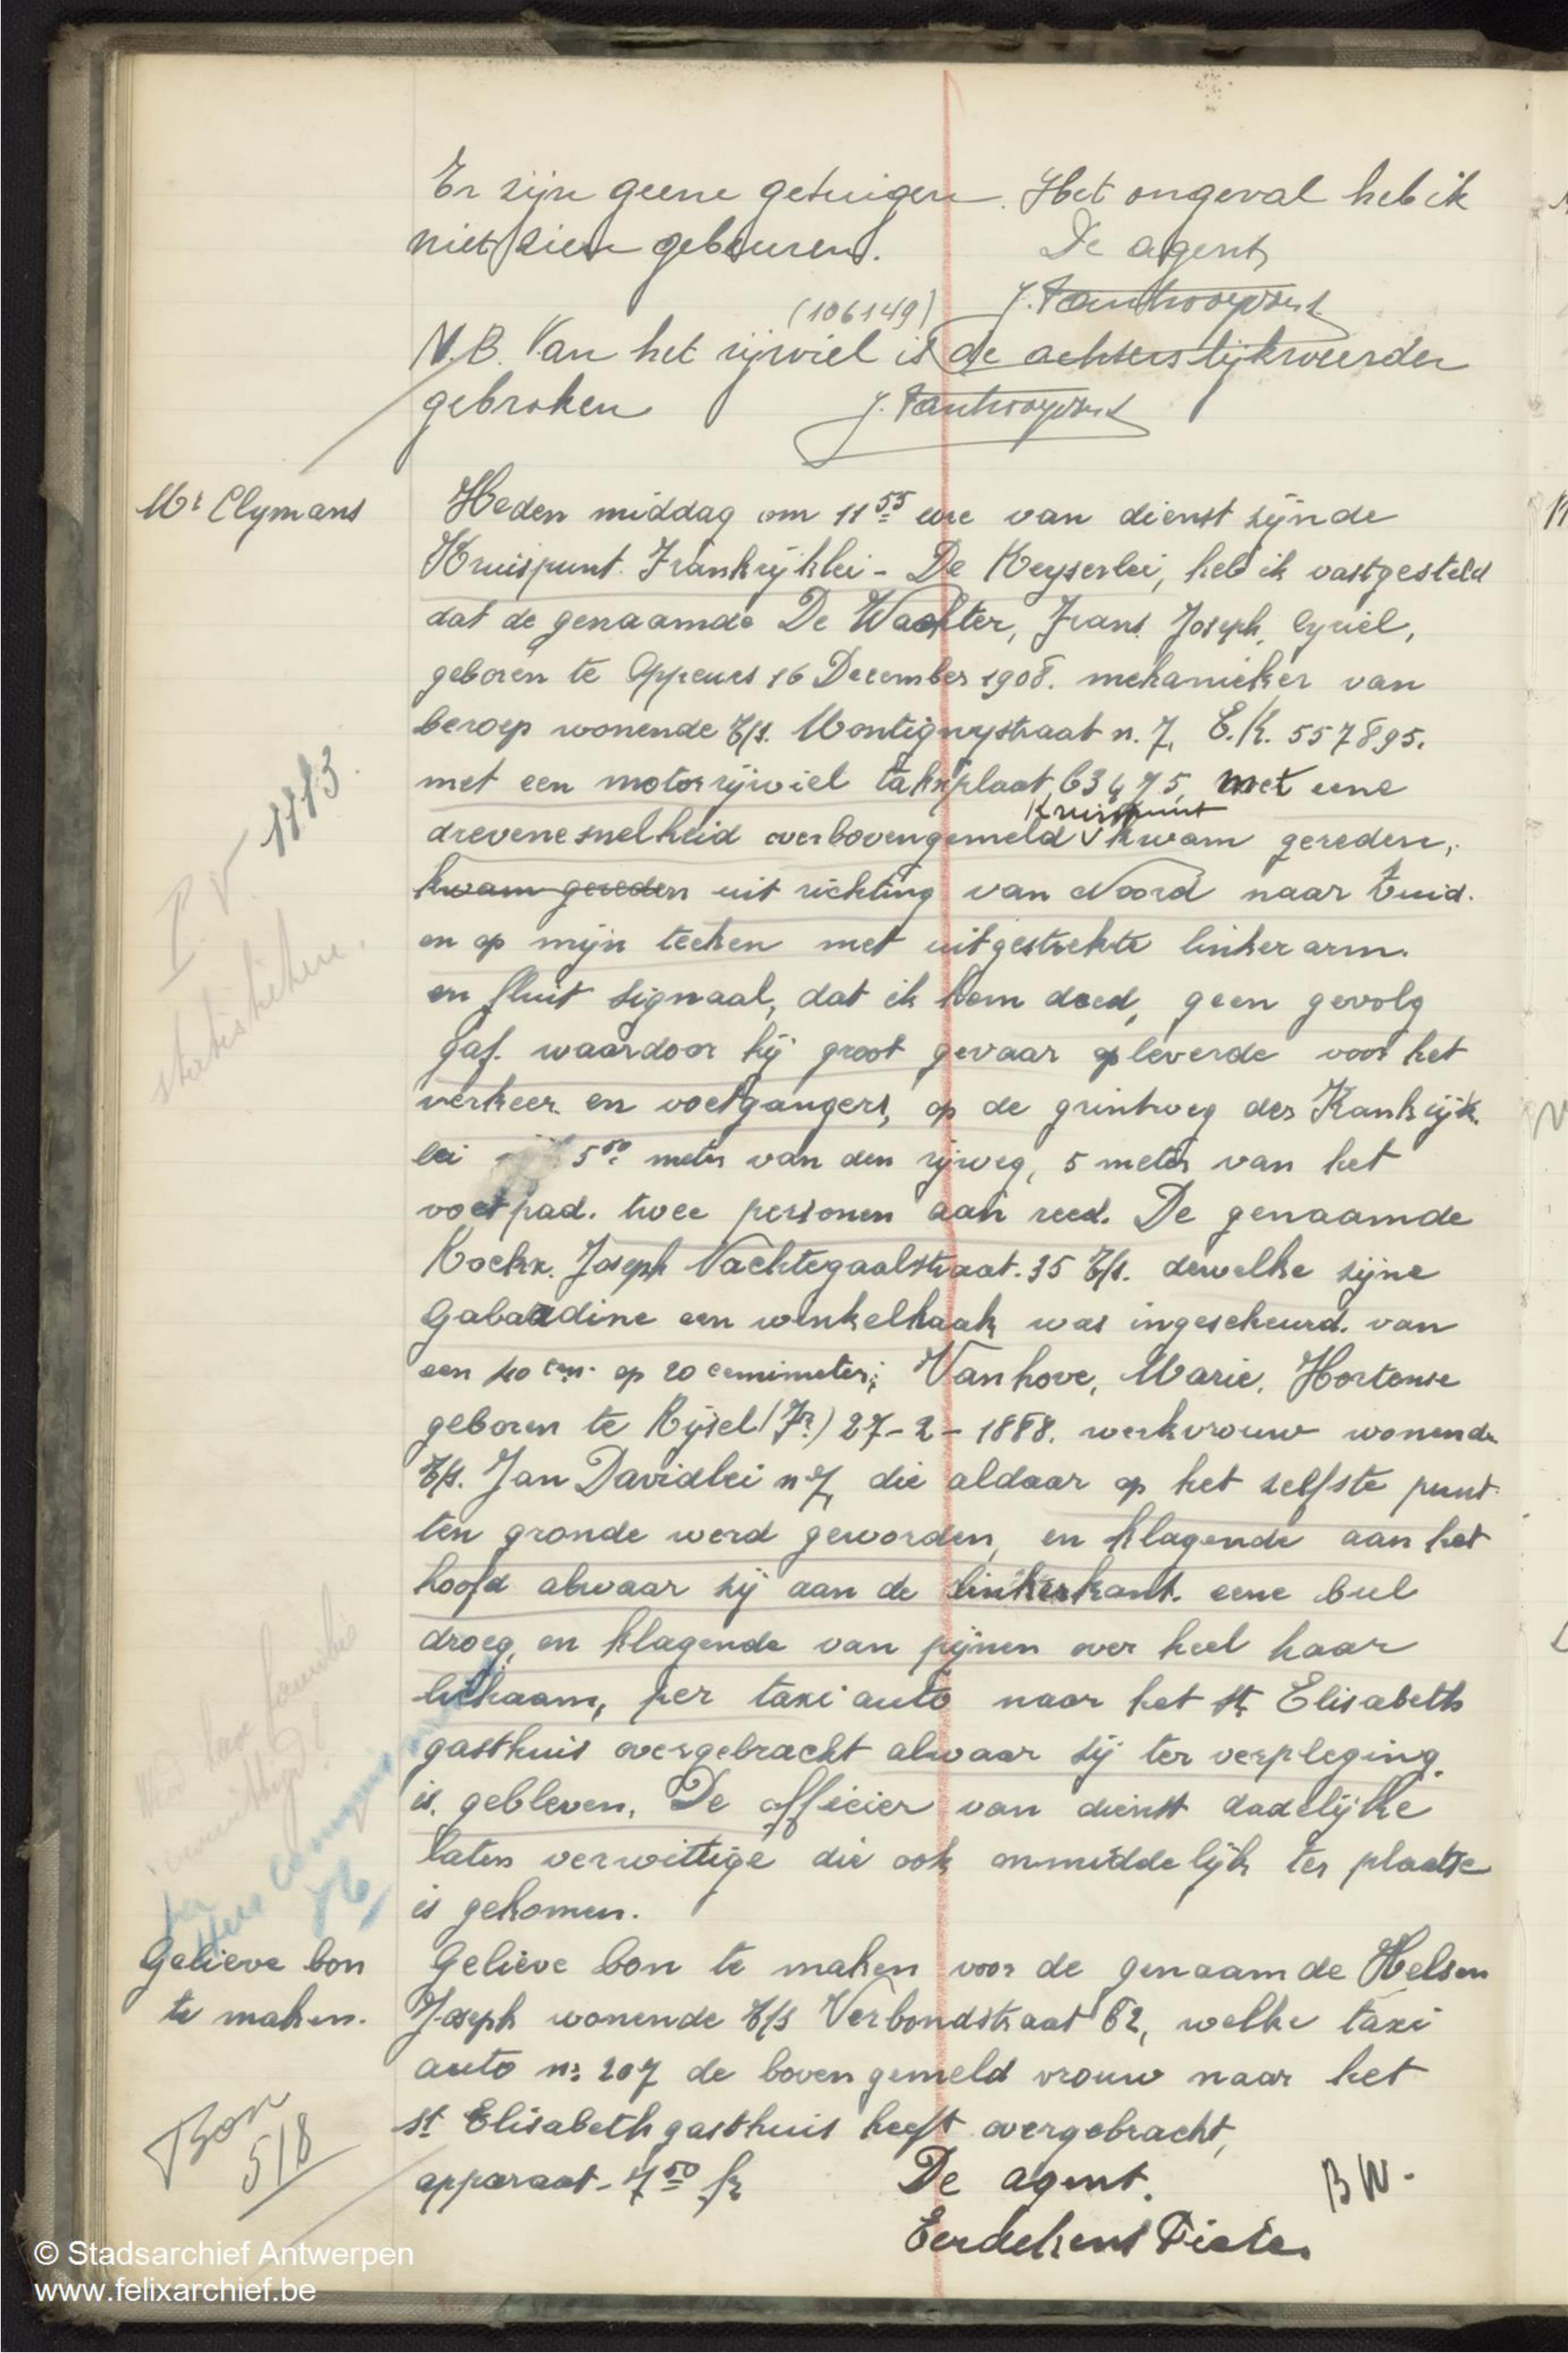 Er zijn geene getuigen. Het ongeval heb ik
niet zien gebeuren.
De agent,
(106149)
N.B. Van het rijwiel is de achterslijkweerder
gebroken
Mr Clymans
Heden middag om 11 55 ure van dienst zijnde
Kruispunt Frankrijklei - De Keyserlei, heb ik vastgesteld
dat de genaamde De Wachter, Frans Joseph, Cyriel,
geboren te 16 December 1908. mekanieker van
beroep wonende t/s. Montignystraat n. 7, E.K. 557895.
met een motorrijwiel taksplaat 63475, met eene
Kruispunt
drevene snelheid over bovengemeld V kwam gereden,
kwam gereden uit richting van Noord naar Zuid.
en op mijn teeken met uitgestrekte linker arm.
en fluit signaal, dat ik hem deed, geen gevolg
gaf. waardoor hij groot gevaar opleverde voor het
verkeer en voetgangers, op de grintweg der Frankrijk
lei 5 50 meter van den rijweg, 5 meter van het
voetpad. twee personen aan reed. De genaamde
Kockx. Joseph Nachtegaalstraat. 35 t/s. dewelke zijne
Gabardine een winkelhaak was ingescheurd. van
een 40 cm. op 20 cenimeter; Vanhove, Marie, Hortense
geboren te Rijsel (Fr.) 27-2-1888. werkvrouw wonende
t/s. Jan Davidlei n. 7, die aldaar op het zelfste punt
ten gronde werd geworden, en klagende aan het
hoofd alwaar zij aan de linkerkant. eene buil
droeg, en klagende van pijnen over heel haar
lichaam, per taxi auto naar het St. Elisabeth
gasthuis overgebracht alwaar zij ter verpleging.
is. gebleven. De officier van dienst dadelijke
laten verwittige die ook onmiddelijk ter plaatse
is gekomen.
Gelieve bon
te maken.
Gelieve bon te maken voor de genaamde Helsen
Joseph wonende t/s Verbondstraat 62, welke taxi
auto n: 207 de boven gemeld vrouw naar het
st Elisabeth gasthuis heeft overgebracht,
apparaat - 4 50 fr
De agent.
BW.
Eerdekens Pieter
P.V. 1113.
statistieken.
Bon
518
© Stadsarchief Antwerpen
www.felixarchief.be